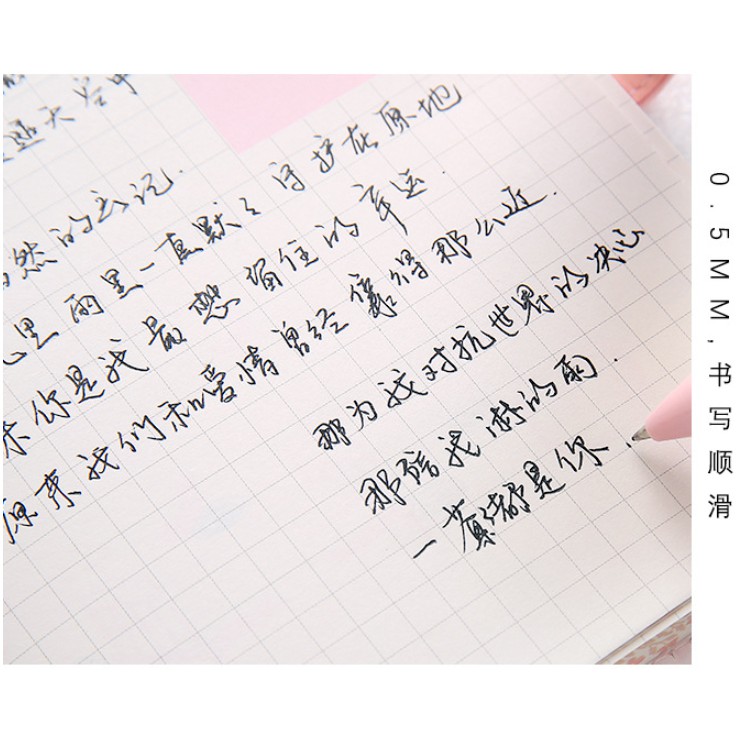 天空中
然的忘记.
里雨里一直默々守护在原地
你是我最想留住的幸运.
原来我们和爱情曾经靠得那么近.
那为我对抗世界的决心
那陪我淋的雨.
一幕々都是你.
0.5MM,书写顺滑